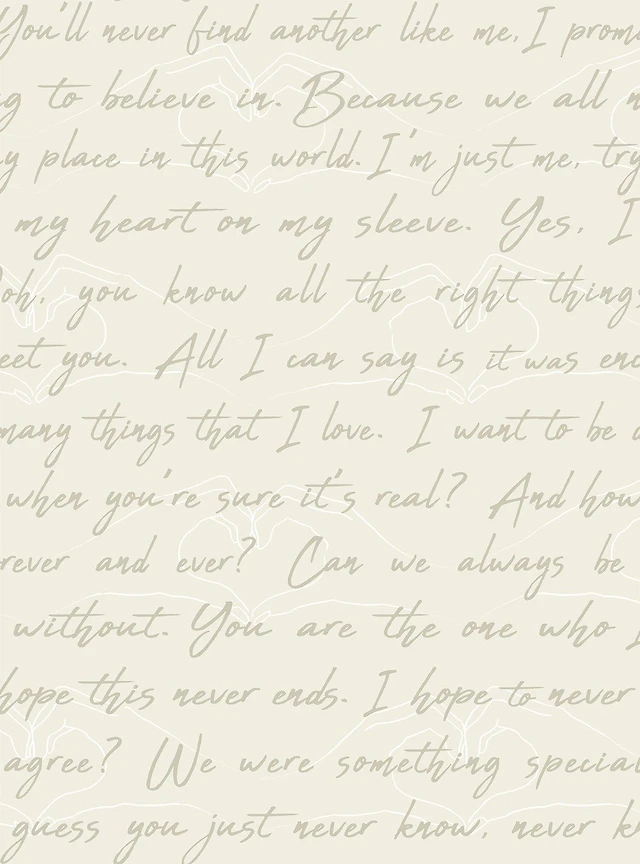 You'll never find another like me, I prom
g to believe in. Because we all
y place in this world. I'm just me, try
my heart on my sleeve. Yes, I
oh, you know all the right things
eet you. All I can say is it was en
many things that I love. I want to be
when you're sure it's real? And how
rever and ever? Can we always be
without. You are the one who I
hope this never ends. I hope to never
agree? We were something special
guess you just never know, never k